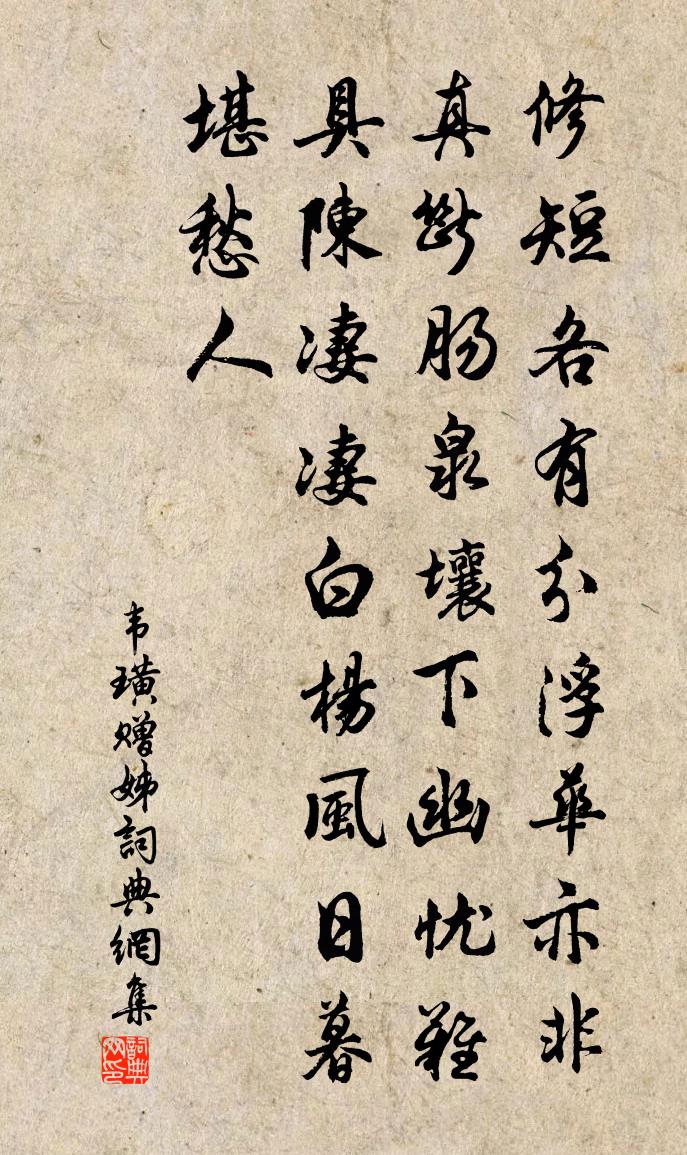 修短各有分浮華亦非
真斷肠泉壤下幽忧難
具陳凄凄白楊風日暮
堪愁人
韦璜赠姊詞典網集
詞典网印